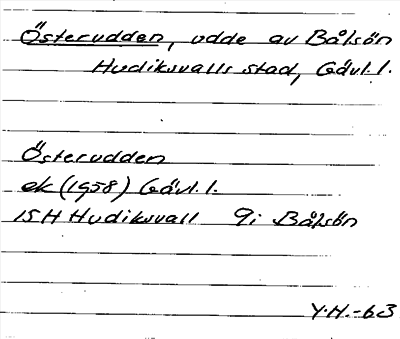 Österudden, udde av Bålsön
Hudiksvalls stad, Gävl. l.
Österudden
ek (1958) Gävl. l.
15H Hudiksvall 9i Bålsön
Y.H.-63